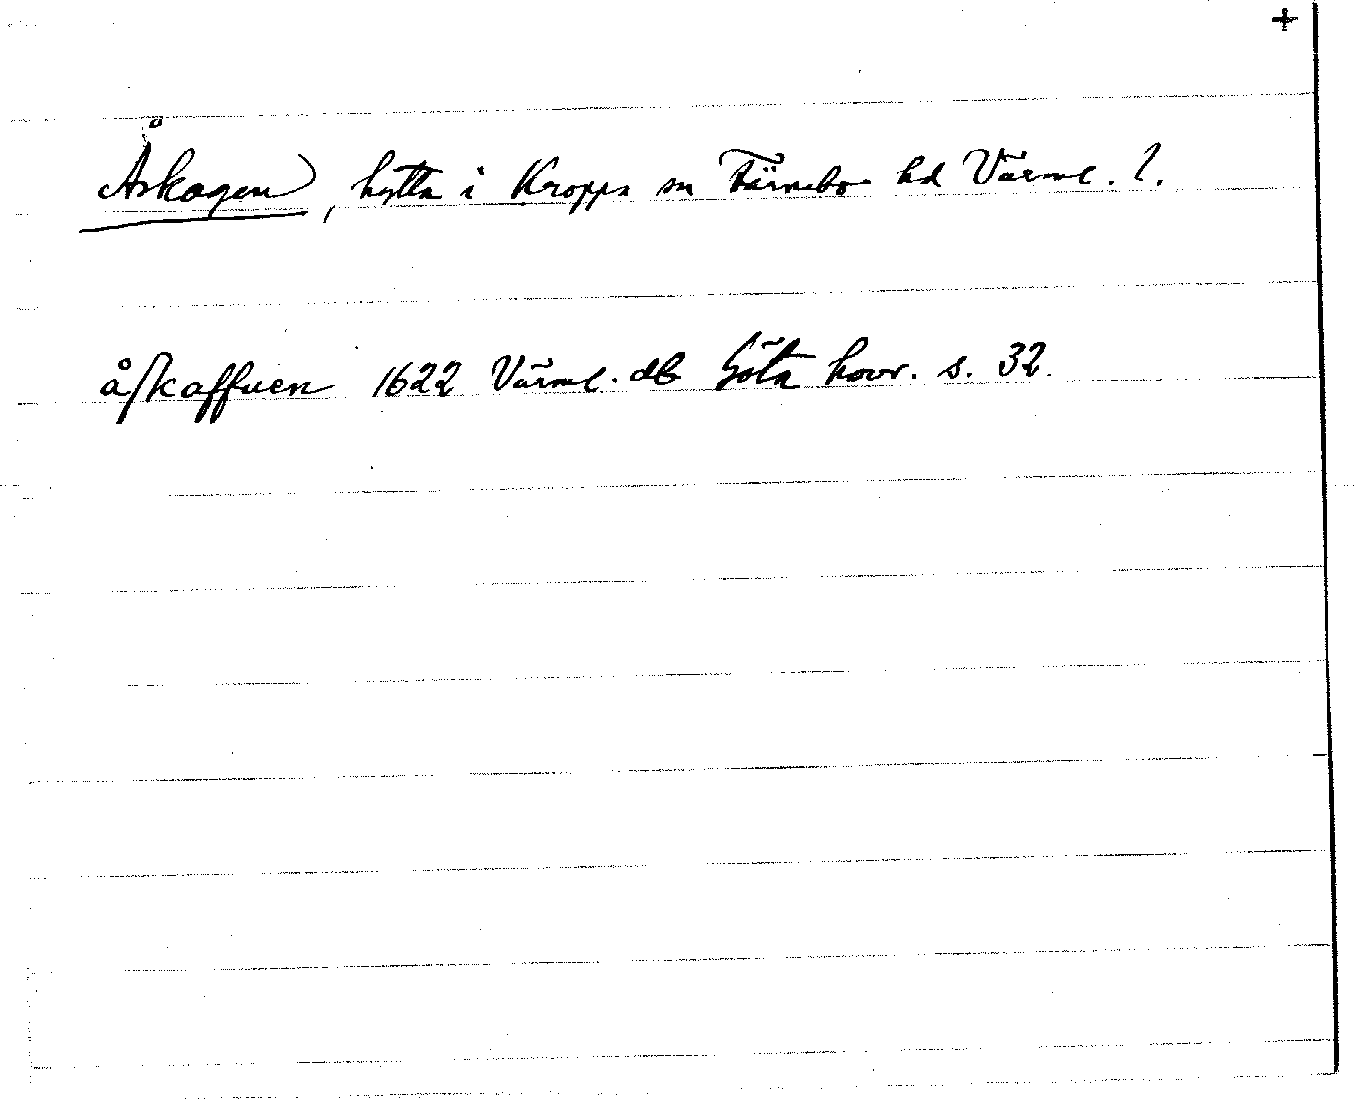 +
Åskagen, hytta i Kroppa sn Färnebo hd Värml. l.
åſkaffuen 1622 Värml. db Göta hovr. s. 32.